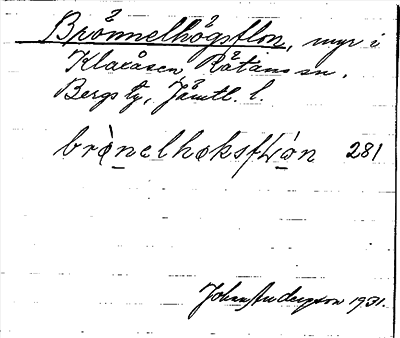 Brännelhögsflon, myr i
Klaxåsen, Rätans sn.
Bergs tg, Jämtl. l.
brònelhøksfLòn 281
Johan Anderzson 1931.